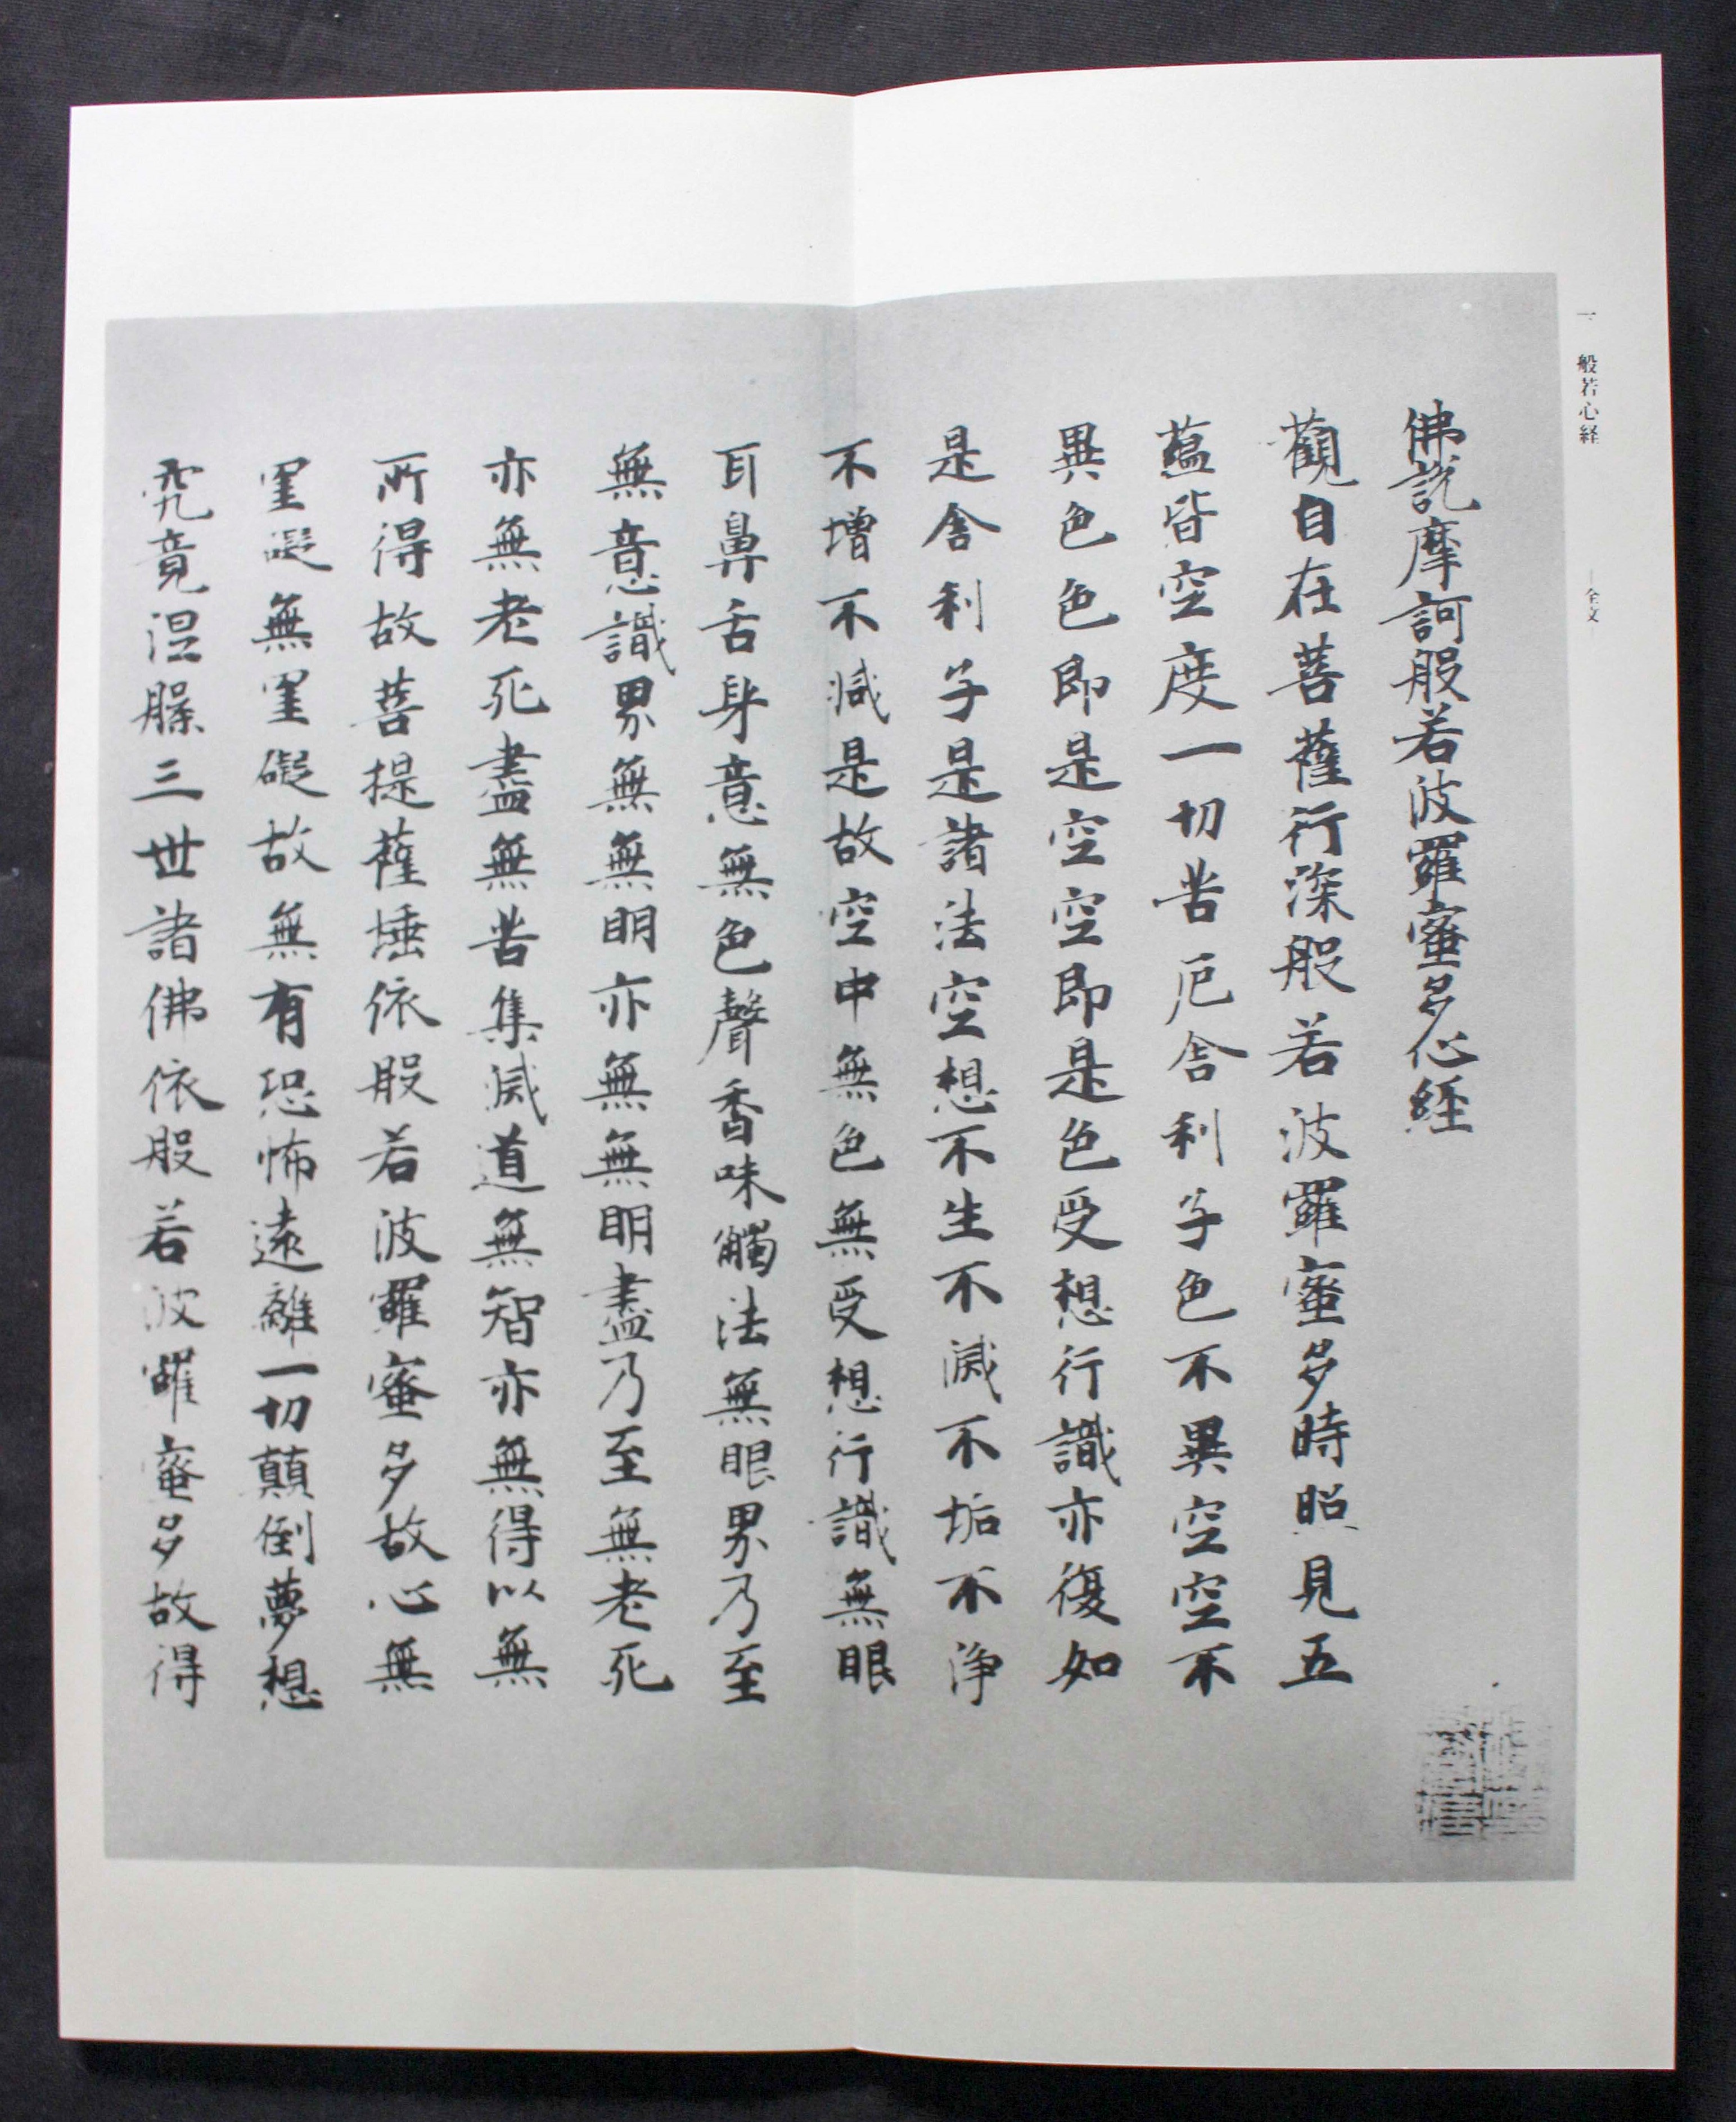 一 般若心経 —全文—
佛説摩訶般若波羅蜜多心経
觀自在菩薩行深般若波羅蜜多時照見五
蘊皆空度一切苦厄舎利子色不異空空不
異色色即是空空即是色受想行識亦復如
是舎利子是諸法空想不生不滅不垢不浄
不増不減是故空中無色無受想行識無眼
耳鼻舌身意無色聲香味觸法無眼界乃至
無意識界無無明亦無無明盡乃至無老死
亦無老死盡無苦集滅道無智亦無得以無
所得故菩提薩埵依般若波羅蜜多故心無
罣礙無罣礙故無有恐怖遠離一切顛倒夢想
究竟涅槃三世諸佛依般若波羅蜜多故得